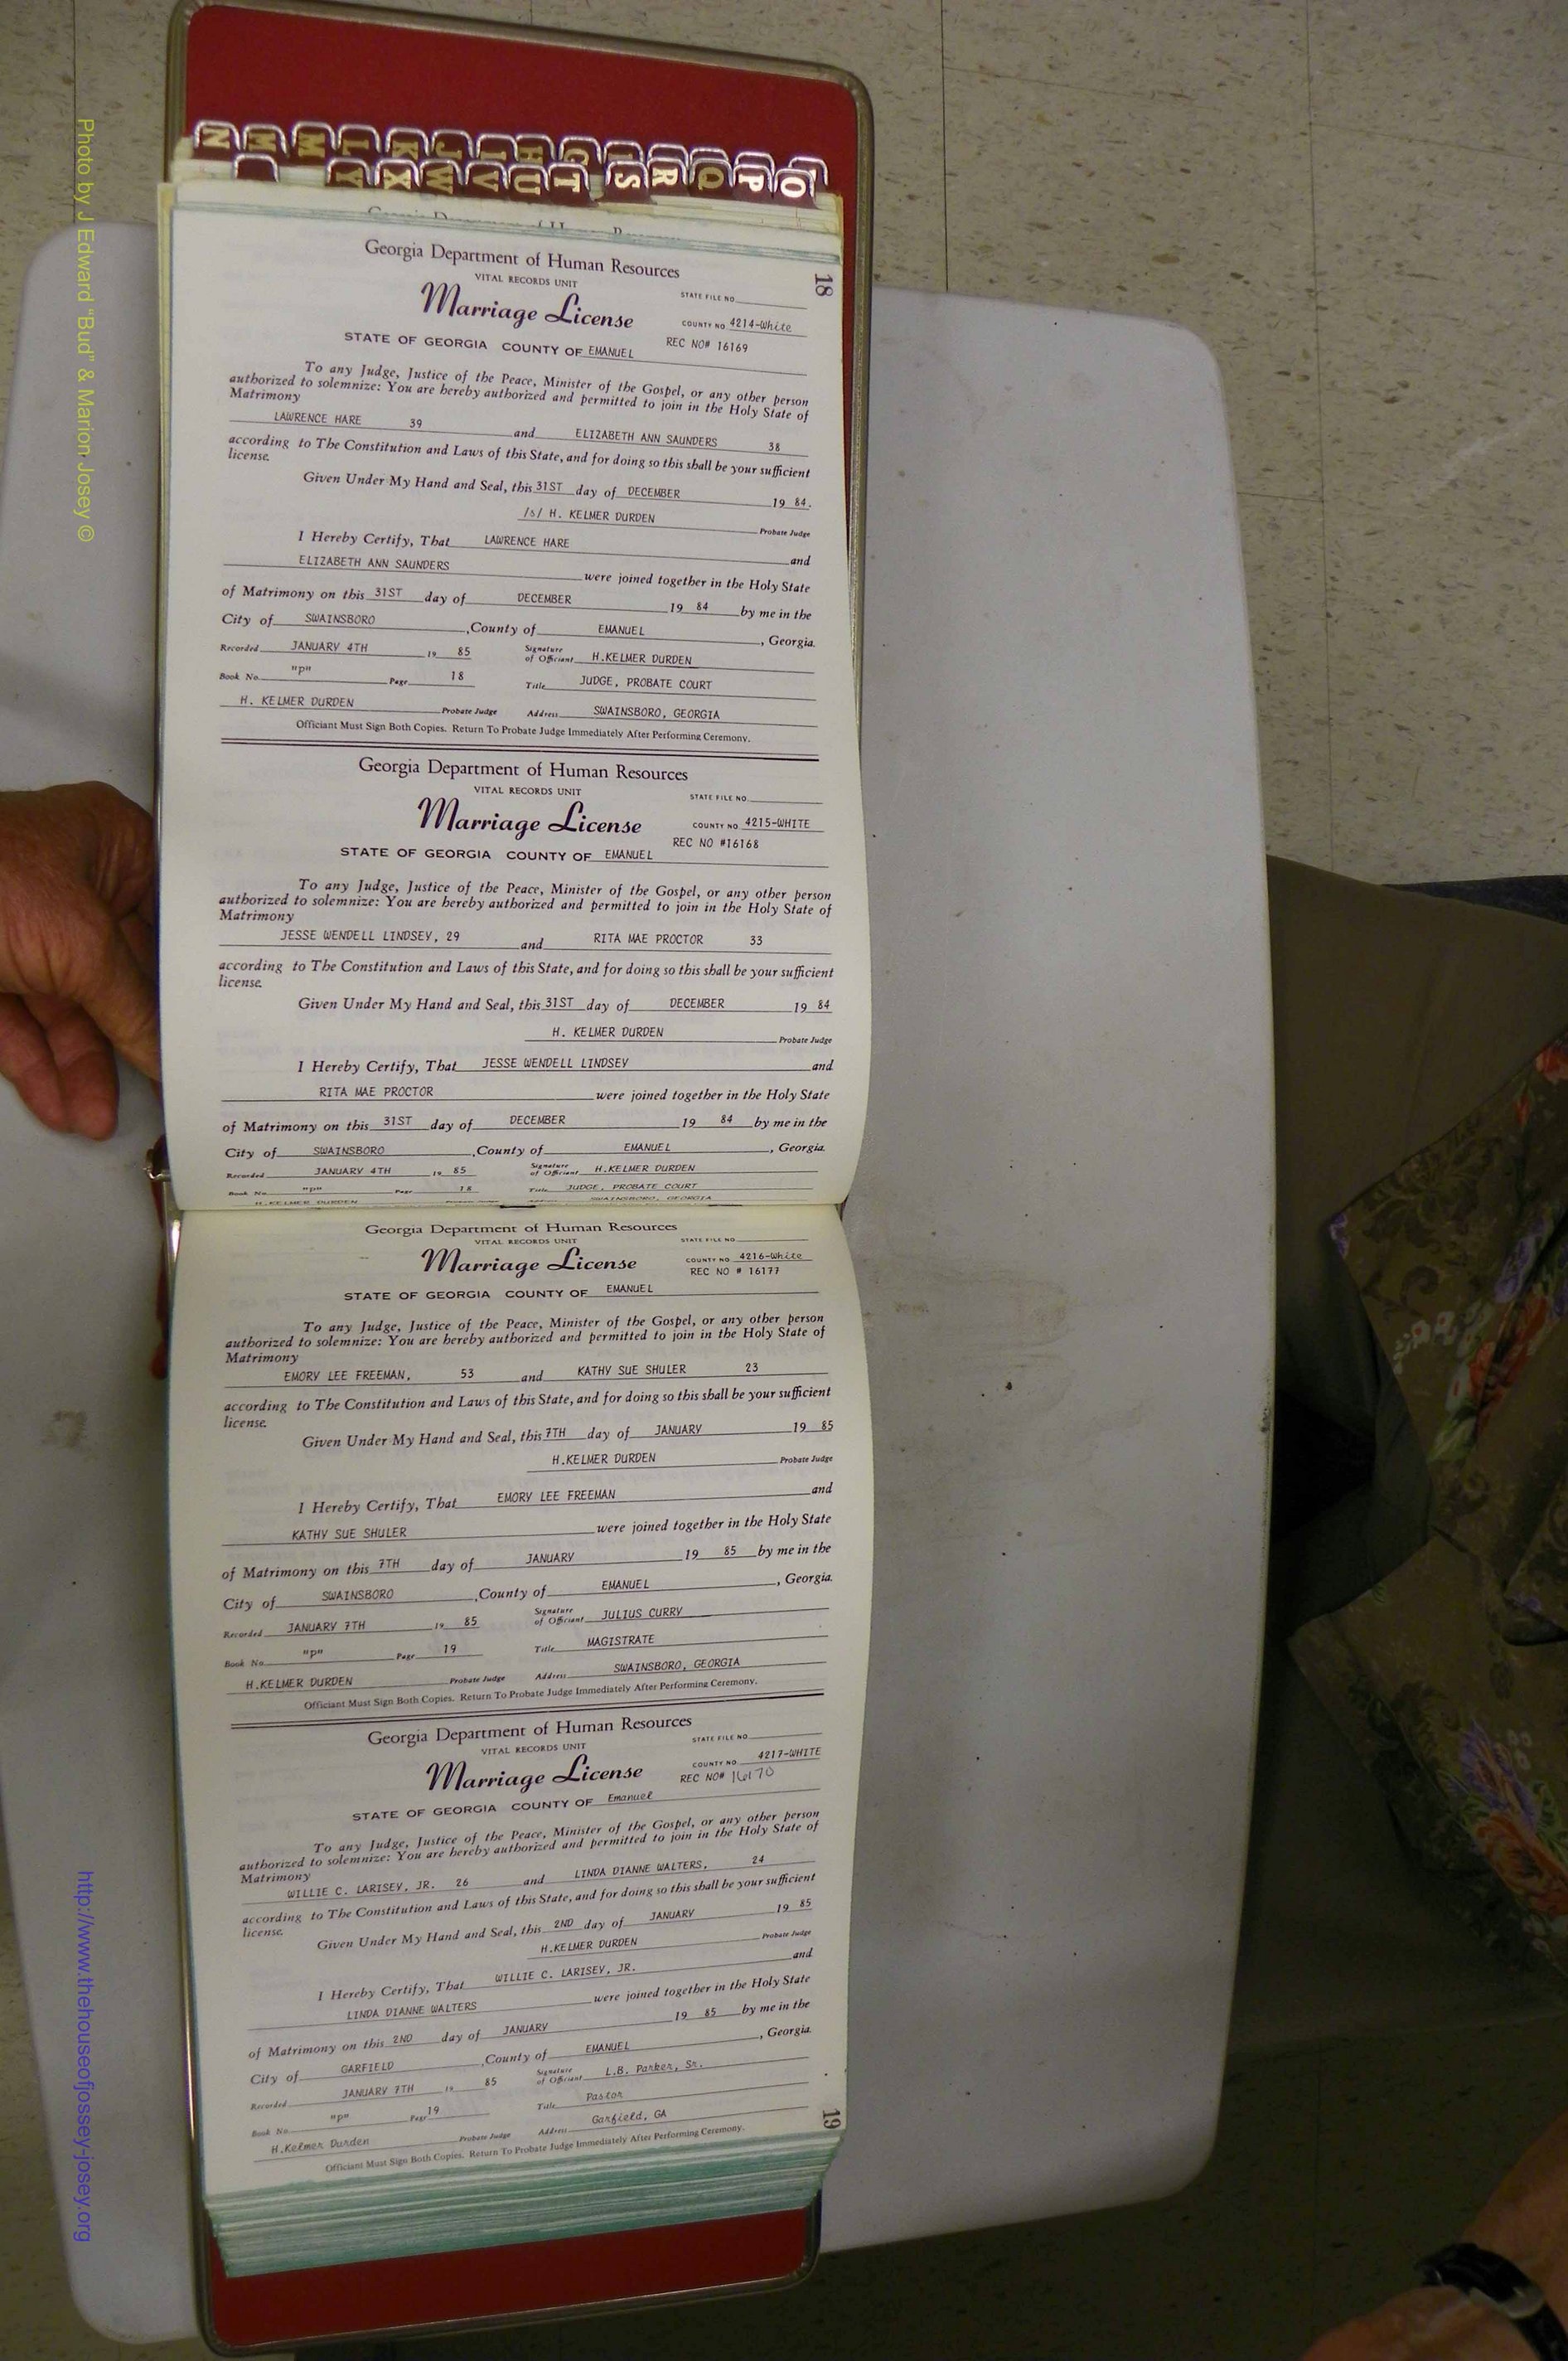 Photo by J Edward "Bud" & Marion Josey ©
http://www.thehouseofjossey-josey.org
N M M L K J I H G
Y X W V U T S R Q P O
18
Georgia Department of Human Resources
VITAL RECORDS UNIT
STATE FILE NO.
Marriage License
COUNTY NO. 4214-White
REC NO# 16169
STATE OF GEORGIA COUNTY OF EMANUEL
To any Judge, Justice of the Peace, Minister of the Gospel, or any other person
authorized to solemnize: You are hereby authorized and permitted to join in the Holy State of
Matrimony
LAWRENCE HARE 39 and ELIZABETH ANN SAUNDERS 38
according to The Constitution and Laws of this State, and for doing so this shall be your sufficient
license.
Given Under My Hand and Seal, this 31ST day of DECEMBER 19 84.
/s/ H. KELMER DURDEN Probate Judge
I Hereby Certify, That LAWRENCE HARE and
ELIZABETH ANN SAUNDERS were joined together in the Holy State
of Matrimony on this 31ST day of DECEMBER 19 84 by me in the
City of SWAINSBORO, County of EMANUEL, Georgia.
Recorded JANUARY 4TH 19 85 Signature of Officiant H.KELMER DURDEN
Book No. "p" Page 18 Title JUDGE, PROBATE COURT
H. KELMER DURDEN Probate Judge Address SWAINSBORO, GEORGIA
Officiant Must Sign Both Copies. Return To Probate Judge Immediately After Performing Ceremony.
Georgia Department of Human Resources
VITAL RECORDS UNIT
STATE FILE NO.
Marriage License
COUNTY NO. 4215-WHITE
REC NO #16168
STATE OF GEORGIA COUNTY OF EMANUEL
To any Judge, Justice of the Peace, Minister of the Gospel, or any other person
authorized to solemnize: You are hereby authorized and permitted to join in the Holy State of
Matrimony
JESSE WENDELL LINDSEY, 29 and RITA MAE PROCTOR 33
according to The Constitution and Laws of this State, and for doing so this shall be your sufficient
license.
Given Under My Hand and Seal, this 31ST day of DECEMBER 19 84
H. KELMER DURDEN Probate Judge
I Hereby Certify, That JESSE WENDELL LINDSEY and
RITA MAE PROCTOR were joined together in the Holy State
of Matrimony on this 31ST day of DECEMBER 19 84 by me in the
City of SWAINSBORO, County of EMANUEL, Georgia.
Recorded JANUARY 4TH 19 85 Signature of Officiant H.KELMER DURDEN
Book No. "p" Page 18 Title JUDGE, PROBATE COURT
H.KELMER DURDEN SWAINSBORO, GEORGIA
Georgia Department of Human Resources
VITAL RECORDS UNIT
STATE FILE NO.
Marriage License
COUNTY NO. 4216-White
REC NO # 16177
STATE OF GEORGIA COUNTY OF EMANUEL
To any Judge, Justice of the Peace, Minister of the Gospel, or any other person
authorized to solemnize: You are hereby authorized and permitted to join in the Holy State of
Matrimony
EMORY LEE FREEMAN, 53 and KATHY SUE SHULER 23
according to The Constitution and Laws of this State, and for doing so this shall be your sufficient
license.
Given Under My Hand and Seal, this 7TH day of JANUARY 19 85
H.KELMER DURDEN Probate Judge
I Hereby Certify, That EMORY LEE FREEMAN and
KATHY SUE SHULER were joined together in the Holy State
of Matrimony on this 7TH day of JANUARY 19 85 by me in the
City of SWAINSBORO, County of EMANUEL, Georgia.
Recorded JANUARY 7TH 19 85 Signature of Officiant JULIUS CURRY
Book No. "p" Page 19 Title MAGISTRATE
H.KELMER DURDEN Probate Judge Address SWAINSBORO, GEORGIA
Officiant Must Sign Both Copies. Return To Probate Judge Immediately After Performing Ceremony.
Georgia Department of Human Resources
VITAL RECORDS UNIT
STATE FILE NO.
Marriage License
COUNTY NO. 4217-WHITE
REC NO# 16170
STATE OF GEORGIA COUNTY OF Emanuel
To any Judge, Justice of the Peace, Minister of the Gospel, or any other person
authorized to solemnize: You are hereby authorized and permitted to join in the Holy State of
Matrimony
WILLIE C. LARISEY, JR. 26 and LINDA DIANNE WALTERS, 24
according to The Constitution and Laws of this State, and for doing so this shall be your sufficient
license.
Given Under My Hand and Seal, this 2ND day of JANUARY 19 85
H.KELMER DURDEN Probate Judge
I Hereby Certify, That WILLIE C. LARISEY, JR. and
LINDA DIANNE WALTERS were joined together in the Holy State
of Matrimony on this 2ND day of JANUARY 19 85 by me in the
City of GARFIELD, County of EMANUEL, Georgia.
Recorded JANUARY 7TH 19 85 Signature of Officiant L.B. Parker, Sr.
Book No. "p" Page 19 Title Pastor
H.Kelmer Durden Probate Judge Address Garfield, GA
Officiant Must Sign Both Copies. Return To Probate Judge Immediately After Performing Ceremony.
19